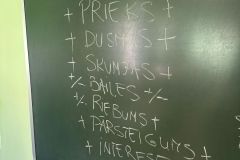 + PRIEKS +
+ DUSMAS +
+ SKUMJAS +
+/- BAILES +/-
+/- RIEBUMS +
+ PĀRSTEIGUMS +
+ INTERESE